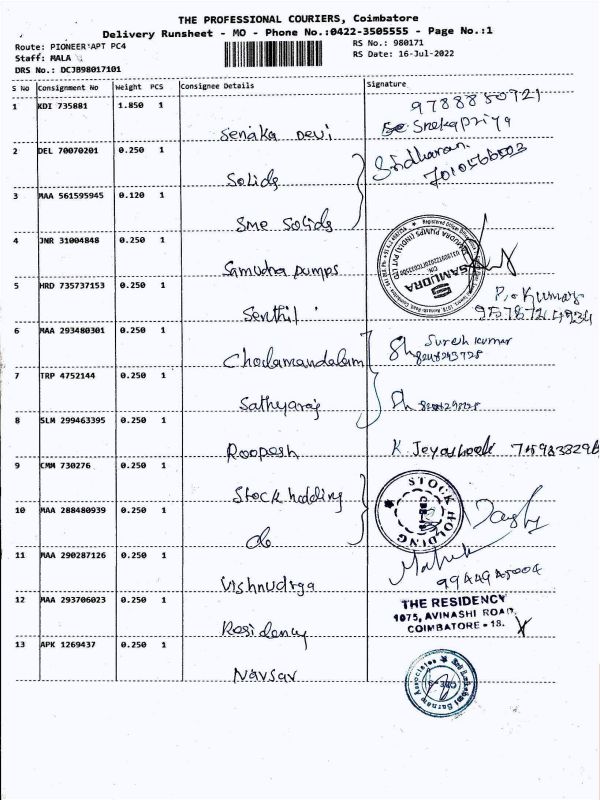 THE PROFESSIONAL COURIERS, Coimbatore
Delivery Runsheet - MO - Phone No.:0422-3505555 - Page No.:1
Route: PIONEER APT PC4
RS No.: 980171
Staff: MALA
RS Date: 16-Jul-2022
DRS No.: DCJB98017101
S No Consignment No Weight PCS Consignee Details Signature
1 KDI 735881 1.850 1 9788850721
Senaka Devi Snekapriya
2 DEL 70070201 0.250 1 Sridharan
Solids 7010566503
3 MAA 561595945 0.120 1
Sme Solids
4 JNR 31004848 0.250 1
Samudra pumps
SAMUDRA
5 HRD 735737153 0.250 1
Senthil
6 MAA 293480301 0.250 1 Suresh Kumar
Cholamandalam
7 TRP 4752144 0.250 1
Sathyaraj
8 SLM 299463395 0.250 1
Roopesh K
9 CMM 730276 0.250 1
Stock holding STOCK HOLDING
10 MAA 288480939 0.250 1
do
11 MAA 290287126 0.250 1
Vishnudrga
12 MAA 293706023 0.250 1 THE RESIDENCY
1075, AVINASHI ROAD,
Residency COIMBATORE - 18.
13 APK 1269437 0.250 1
Navsav